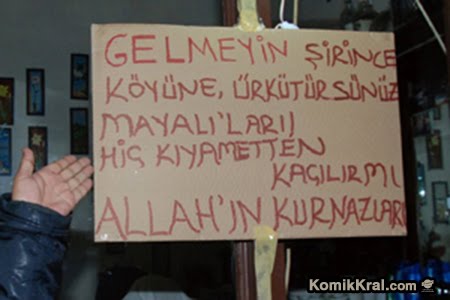 GELMEYİN ŞİRİNCE
KÖYÜNE, ÜRKÜTÜRSÜNÜZ
MAYALI'LARI)
HİÇ KIYAMETTEN
KAÇILIRMI
ALLAH'IN KURNAZLARI
KomikKral.com